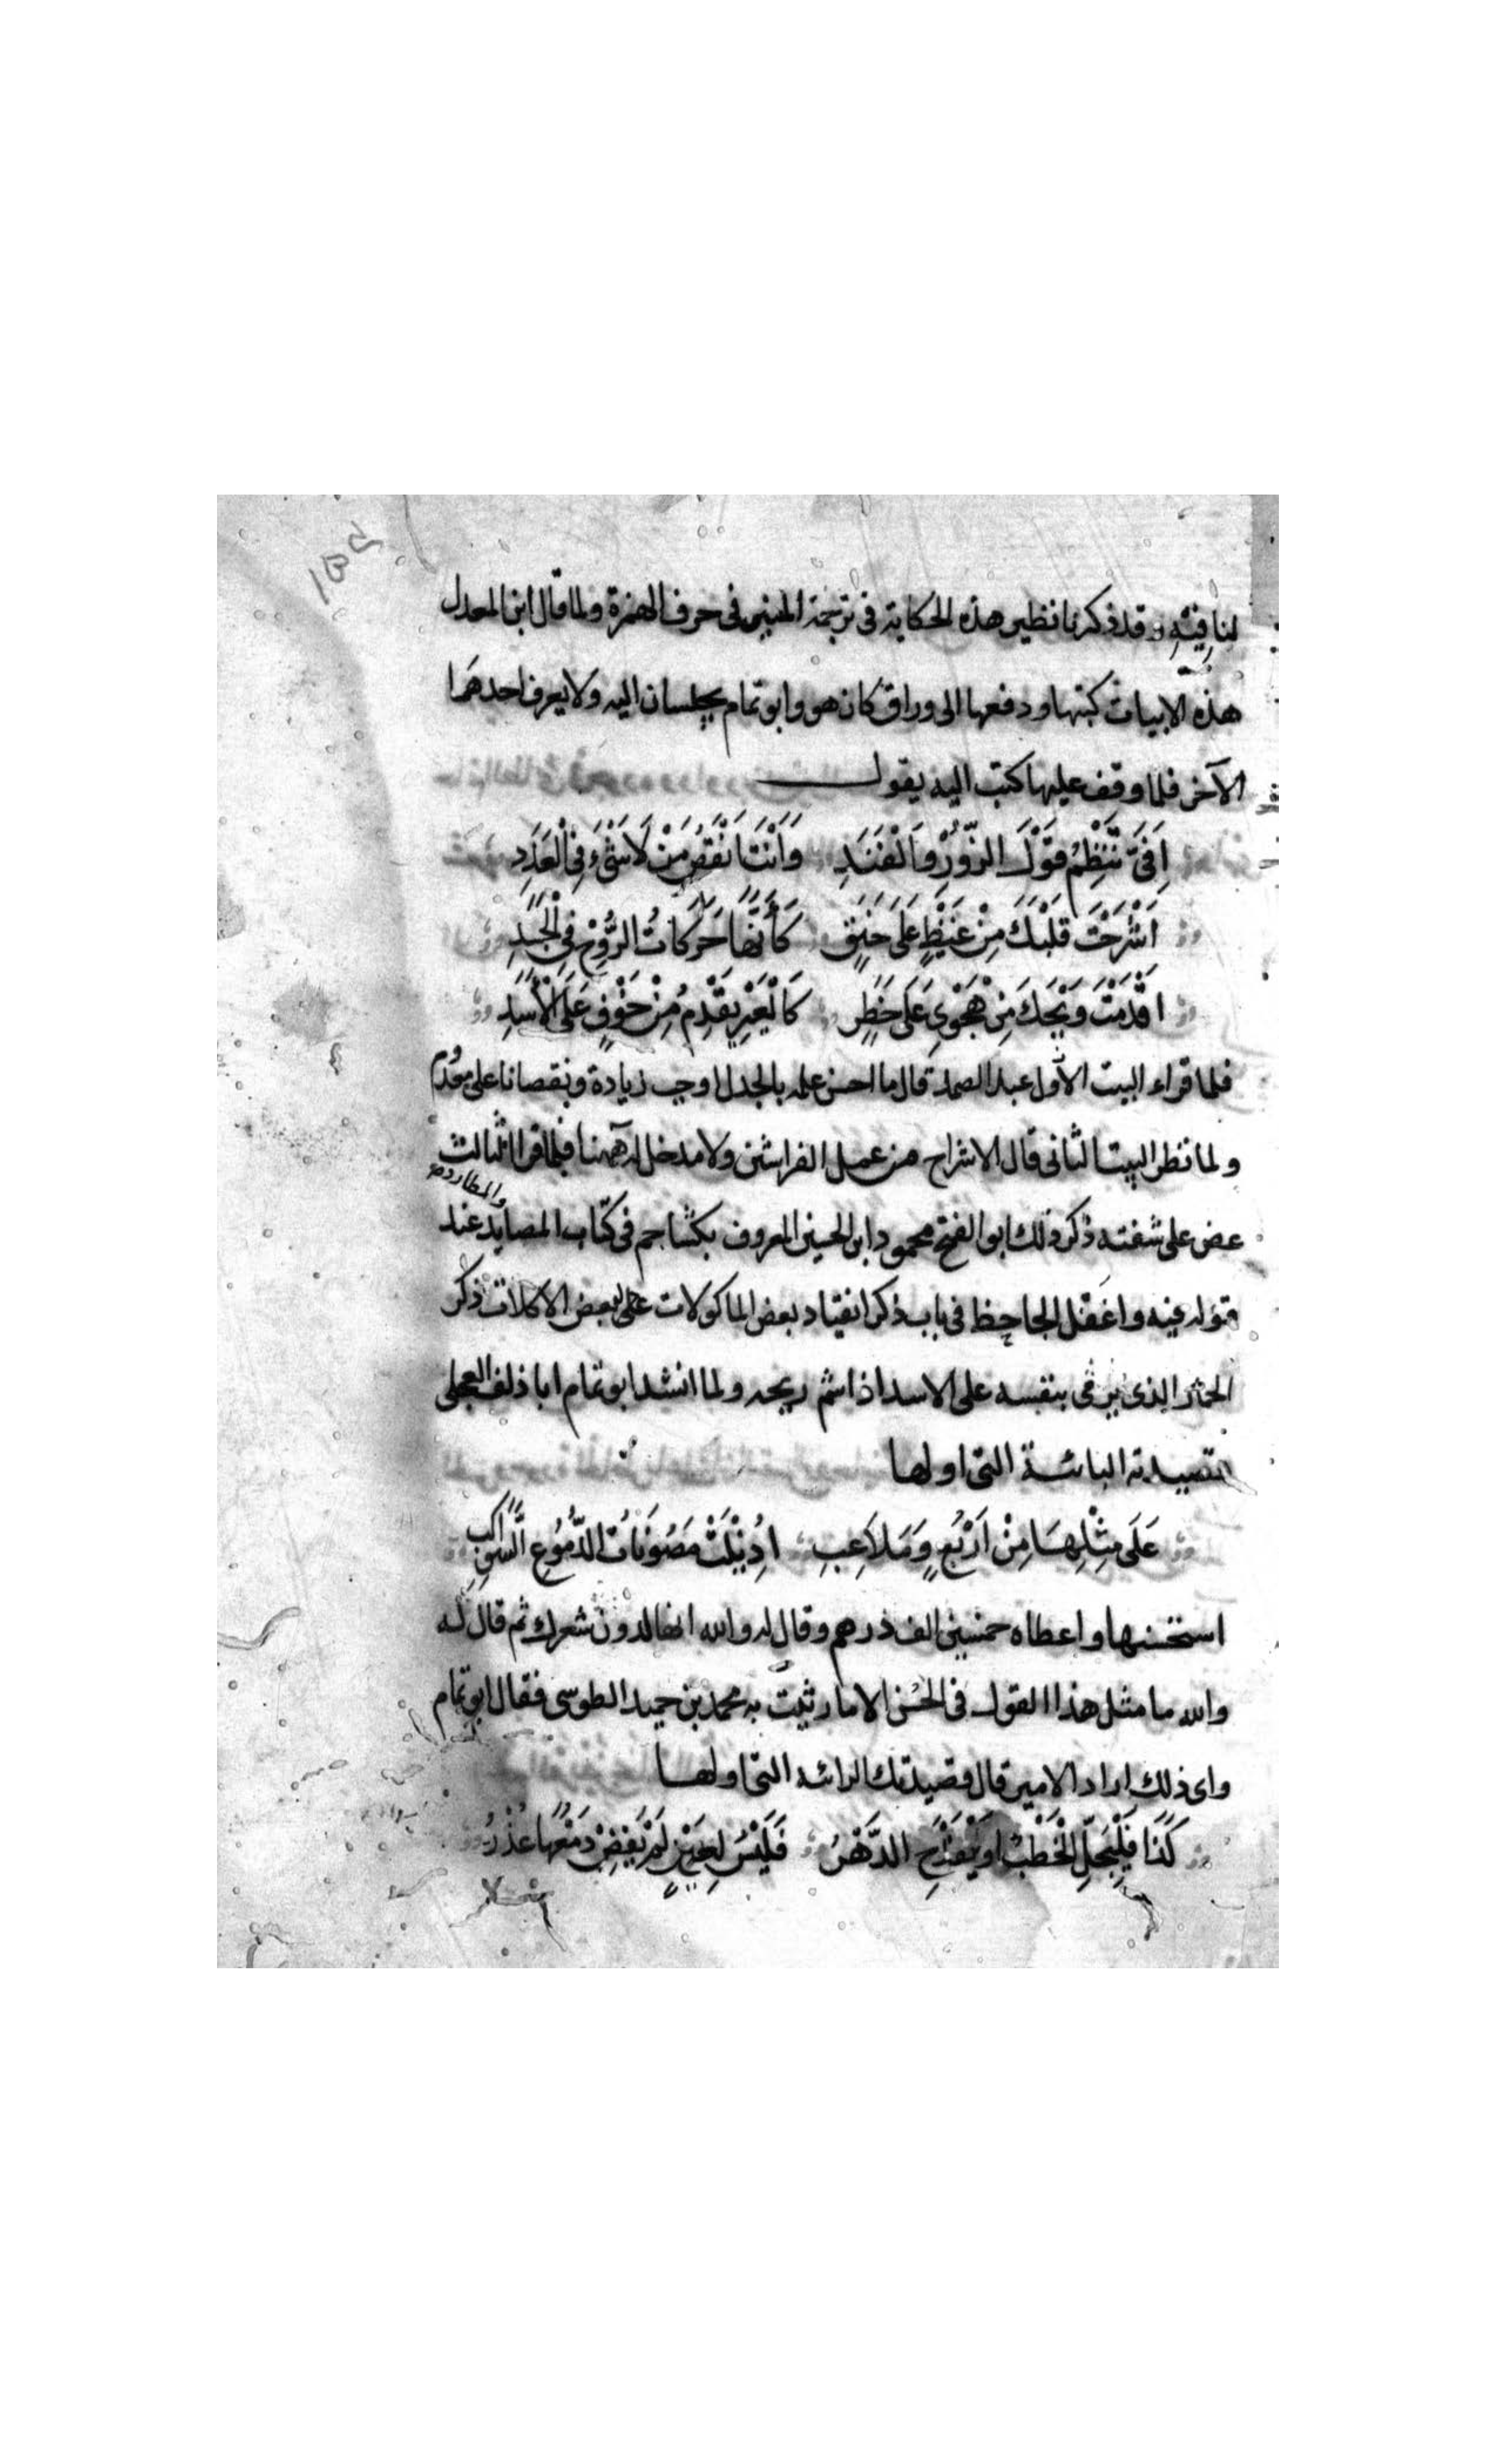 لمنافيته وقد ذكرنا نظير هذه الحكاية فى ترجمة المتنبى فى حرف الهمزة ولما قال ابن المعدل
هذه الابيات كتبها ودفعها الى وراق كان هو وابو تمام يجلسان اليه ولا يعرف احدهما
الآخر فلما وقف عليها كتب اليه يقول
اَفِىَّ تَنْظِمُ قَوْلَ الزُّورِ وَالْفَنَدِ وَاَنْتَ اَنْقَصُ مِنْ لَا شَىْءَ فِى الْعَدَدِ
اَشْرَجْتَ قَلْبَكَ مِنْ غَيْظٍ عَلَى حَنَقٍ كَأَنَّهَا حَرَكَاتُ الرُّوْحِ فِى الْجَسَدِ
اَقْدَمْتَ وَيْحَكَ مِنْ هَجْوِى عَلَى خَطَرٍ كَالْعَيْرِ يَقْدِمُ مِنْ خَوْفٍ عَلَى الْأَسَدِ
فلما قراء البيت الأول عبد الصمد قال ما احسن علمه بالجدل اوجب زيادة ونقصانا على معدُم
ولما نظر البيت الثانى قال الاشراج من عمل الفراشين ولا مدخل له ههنا فلما قرا الثالث
عض على شفته ذكر ذلك ابو الفتح محمود ابن الحسين المعروف بكشاجم فى كتاب المصايد والمطارد عند
قوله فيه واغفل الجاحظ فى باب ذكر انقياد بعض الماكولات على بعض الاكلات ذكر
الحمار الذى يرمى بنفسه على الاسد اذا شم ريحه ولما انشد ابو تمام ابا دلف العجلى
قصيدته البائية التى اولها
عَلَى مِثْلِهَا مِنْ اَرْبُعٍ وَمَلَاعِبِ اُذِيْلَتْ مَصُوْنَاتُ الدُّمُوْعِ السَّوَاكِبِ
استحسنها واعطاه خمسين الف درهم وقال له والله انها لدون شعرك ثم قال له
والله ما مثل هذا القول فى الحسن الا ما رثيت به محمد بن حميد الطوسى فقال ابو تمام
واى ذلك اراد الامير قال قصيدتك الرائية التى اولها
كَذَا فَلْيَجِلَّ الْخَطْبُ وَلْيَفْدَحِ الدَّهْرُ فَلَيْسَ لِعَيْنٍ لَمْ يَفِضْ دَمْعُهَا عُذْرُ